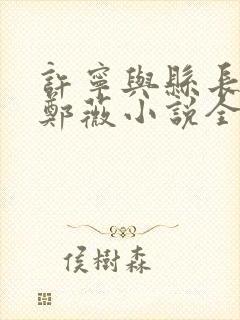 許寧與縣長
鄭薇小說全
侯樹森